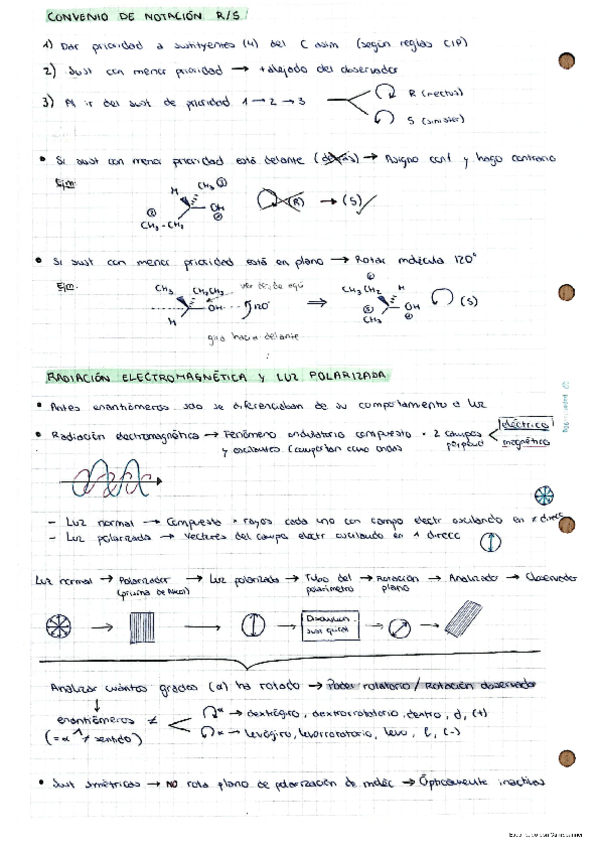 CONVENIO DE NOTACIÓN R/S
1) Dar prioridad a sustituyentes (4) del C asim (según reglas CIP)
2) Sust con menor prioridad → + alejado del observador
3) Al ir del sust de prioridad 1 → 2 → 3
R (rectus)
S (sinister)
• Si sust con menor prioridad está delante (detrás) → Asigno conf y hago contrario
Ejm:
H CH3 ③
OH
②
CH3-CH2
(R) → (S)
• Si sust con menor prioridad está en plano → Rotar molécula 120°
Ejm:
CH3 CH2CH3 ver desde aquí
OH 120°
H
⇒
CH3CH2 H
OH
CH3
(S)
giro hacia delante
RADIACIÓN ELECTROMAGNÉTICA Y LUZ POLARIZADA
• Antes enantiómeros solo se diferenciaban de su comportamiento a luz
• Radiación electromagnética → Fenómeno ondulatorio compuesto × 2 campos eléctrico
y oscilantes (comportan como ondas) perpend magnético
- Luz normal → Compuesta × rayos cada uno con campo electr oscilando en ≠ direcc
- Luz polarizada → Vectores del campo electr oscilando en 1 direcc
Luz normal → Polarizador → Luz polarizada → Tubo del → Rotación → Analizador → Observador
(prisma de Nicol) polarímetro plano
Disolución
sust quiral
Analizar cuántos grados (α) ha rotado → Poder rotatorio / Rotación observada
enantiómeros ≠
(= α ^ ≠ sentido)
α → dextrógiro, dextrorrotatorio, dextro, d, (+)
α → levógiro, levorrotatorio, levo, l, (-)
• Sust simétricas → NO rota plano de polarización de moléc → Ópticamente inactivas